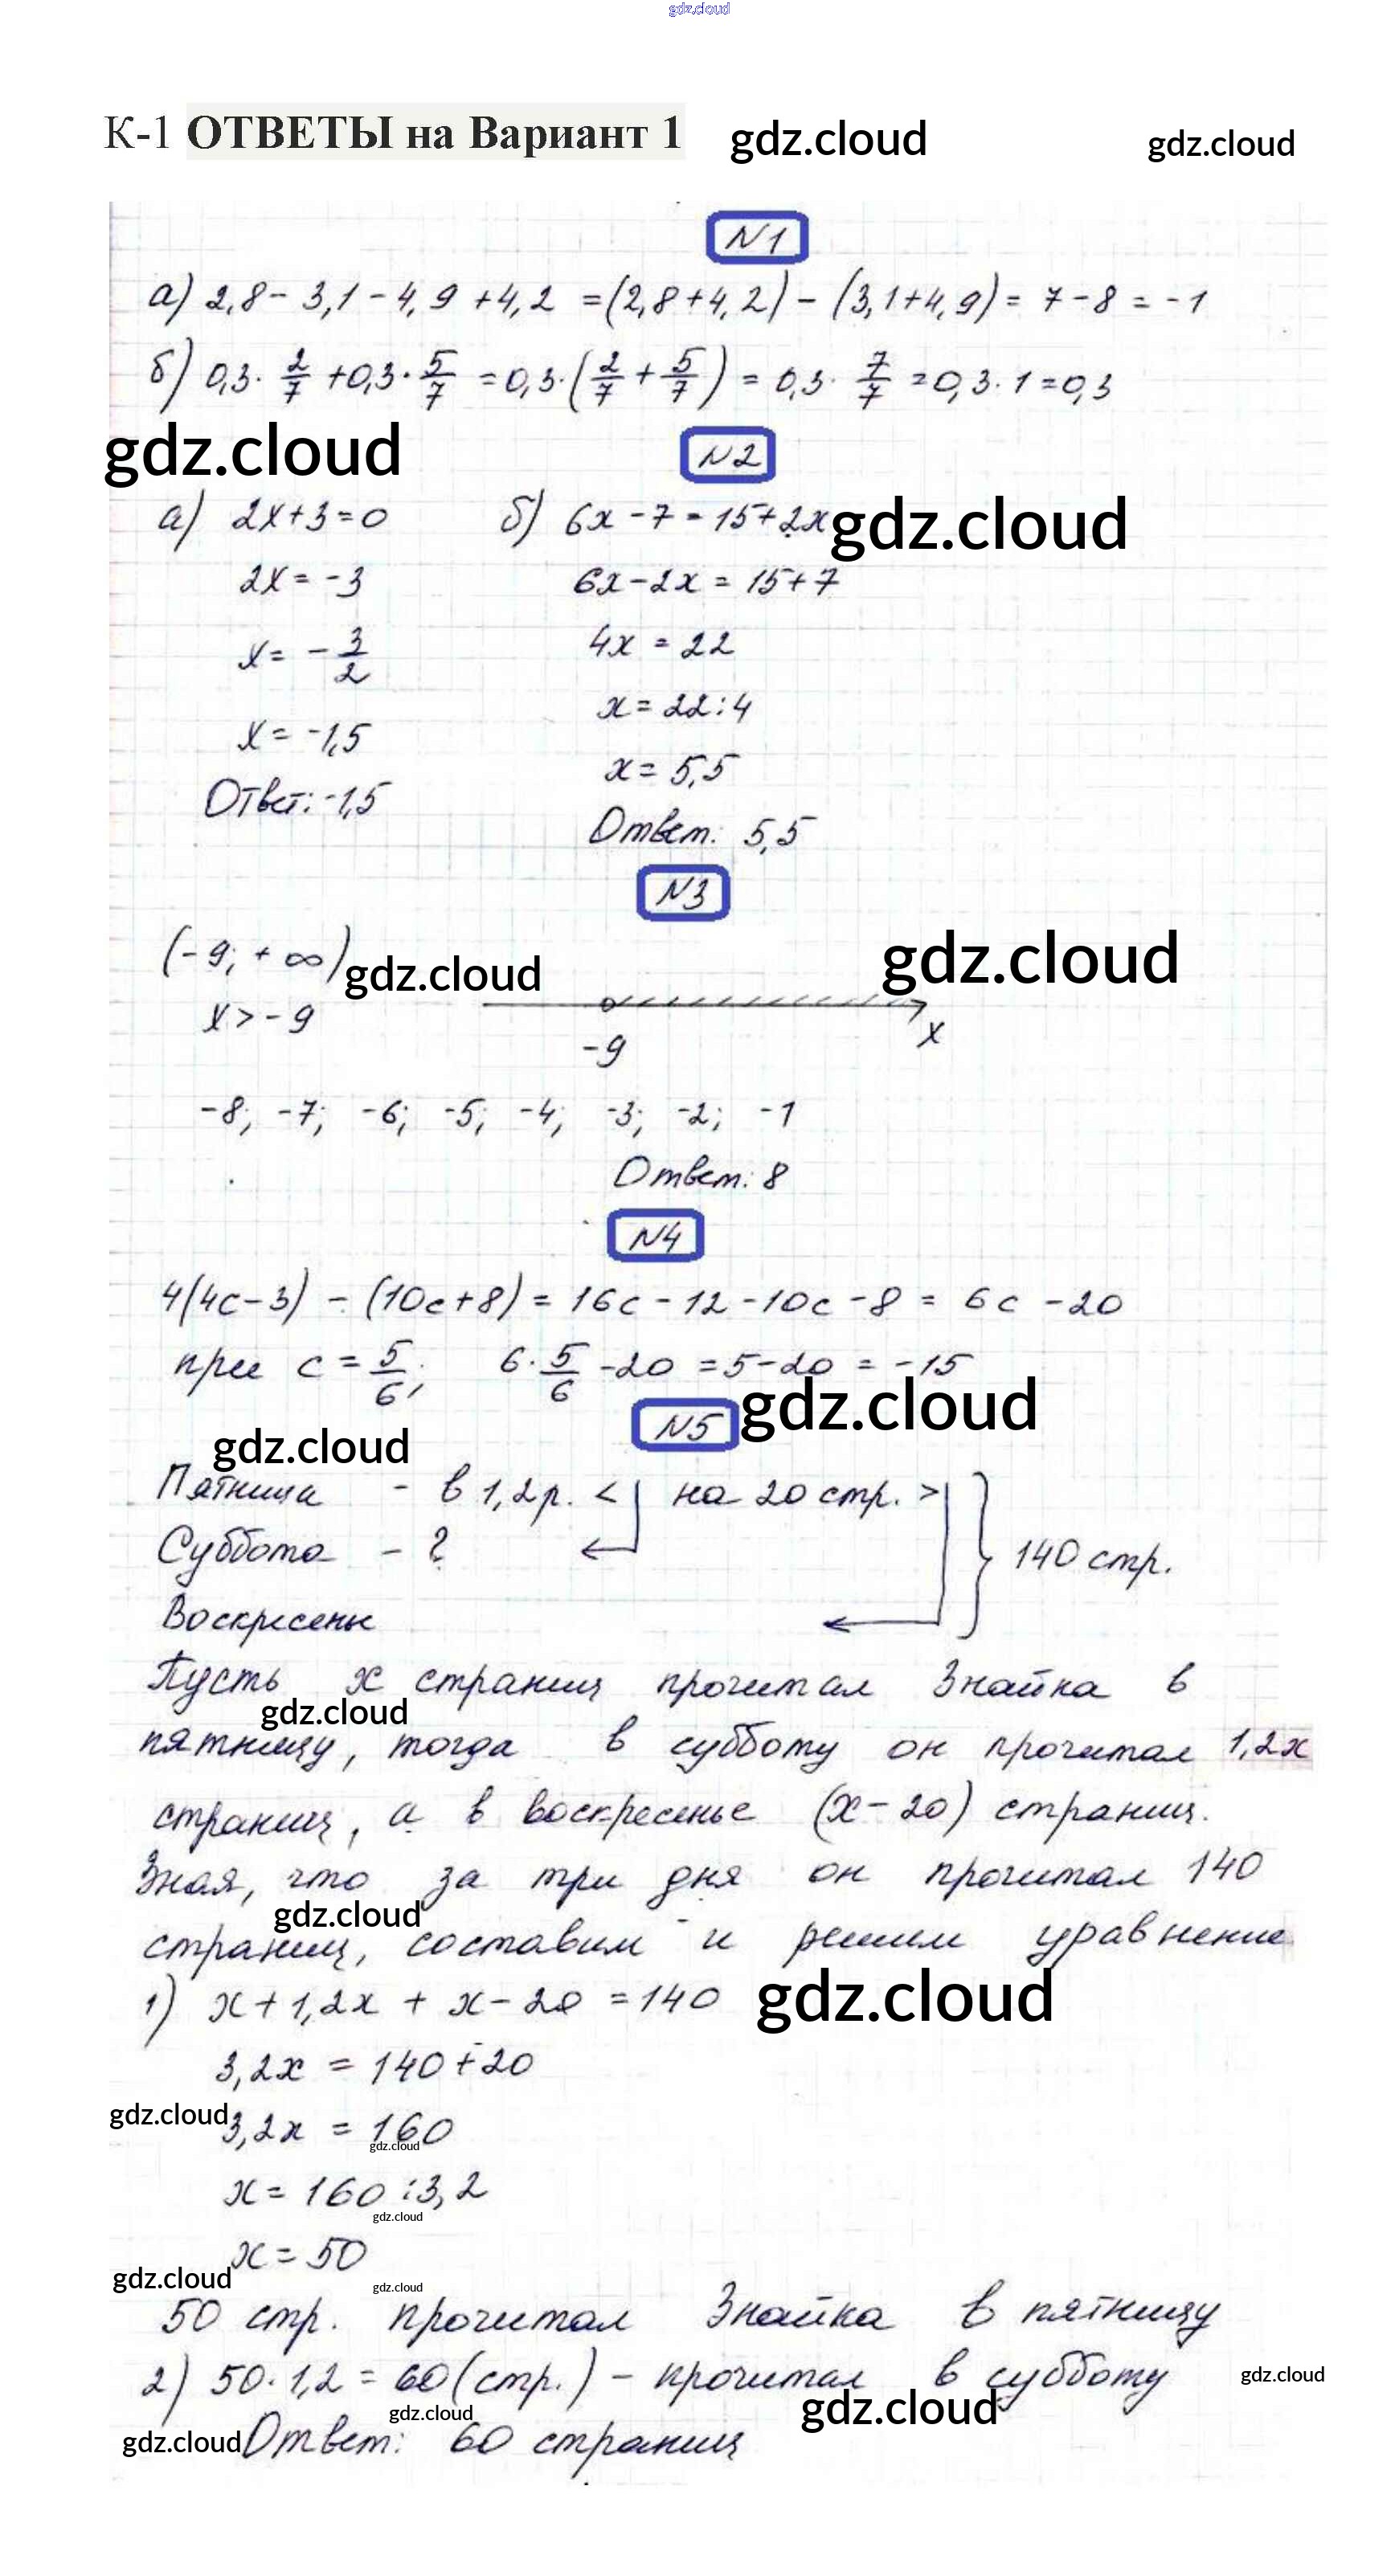 gdz.cloud
К-1 ОТВЕТЫ на Вариант 1 gdz.cloud gdz.cloud
N1
а) 2,8 - 3,1 - 4,9 + 4,2 = (2,8 + 4,2) - (3,1 + 4,9) = 7 - 8 = -1
б) 0,3 · 2/7 + 0,3 · 5/7 = 0,3 · (2/7 + 5/7) = 0,3 · 7/7 = 0,3 · 1 = 0,3
gdz.cloud N2
а) 2x + 3 = 0 б) 6x - 7 = 15 + 2x gdz.cloud
2x = -3 6x - 2x = 15 + 7
x = -3/2 4x = 22
x = 22 : 4
x = -1,5 x = 5,5
Ответ: -1,5 Ответ: 5,5
N3
(-9; +∞) gdz.cloud gdz.cloud
x > -9 -9 x
-8; -7; -6; -5; -4; -3; -2; -1
Ответ: 8
N4
4(4c - 3) - (10c + 8) = 16c - 12 - 10c - 8 = 6c - 20
при c = 5/6; 6 · 5/6 - 20 = 5 - 20 = -15
N5 gdz.cloud
gdz.cloud
Пятница - в 1,2 р. < на 20 стр. >
Суббота - ? 140 стр.
Воскресенье
Пусть x страниц прочитал Знайка в
gdz.cloud
пятницу, тогда в субботу он прочитал 1,2x
страниц, а в воскресенье (x - 20) страниц.
Зная, что за три дня он прочитал 140
gdz.cloud
страниц, составим и решим уравнение
1) x + 1,2x + x - 20 = 140 gdz.cloud
3,2x = 140 + 20
gdz.cloud 3,2x = 160
gdz.cloud
x = 160 : 3,2
gdz.cloud
x = 50
gdz.cloud gdz.cloud
50 стр. прочитал Знайка в пятницу
2) 50 · 1,2 = 60 (стр.) - прочитал в субботу gdz.cloud
gdz.cloud gdz.cloud
gdz.cloud Ответ: 60 страниц